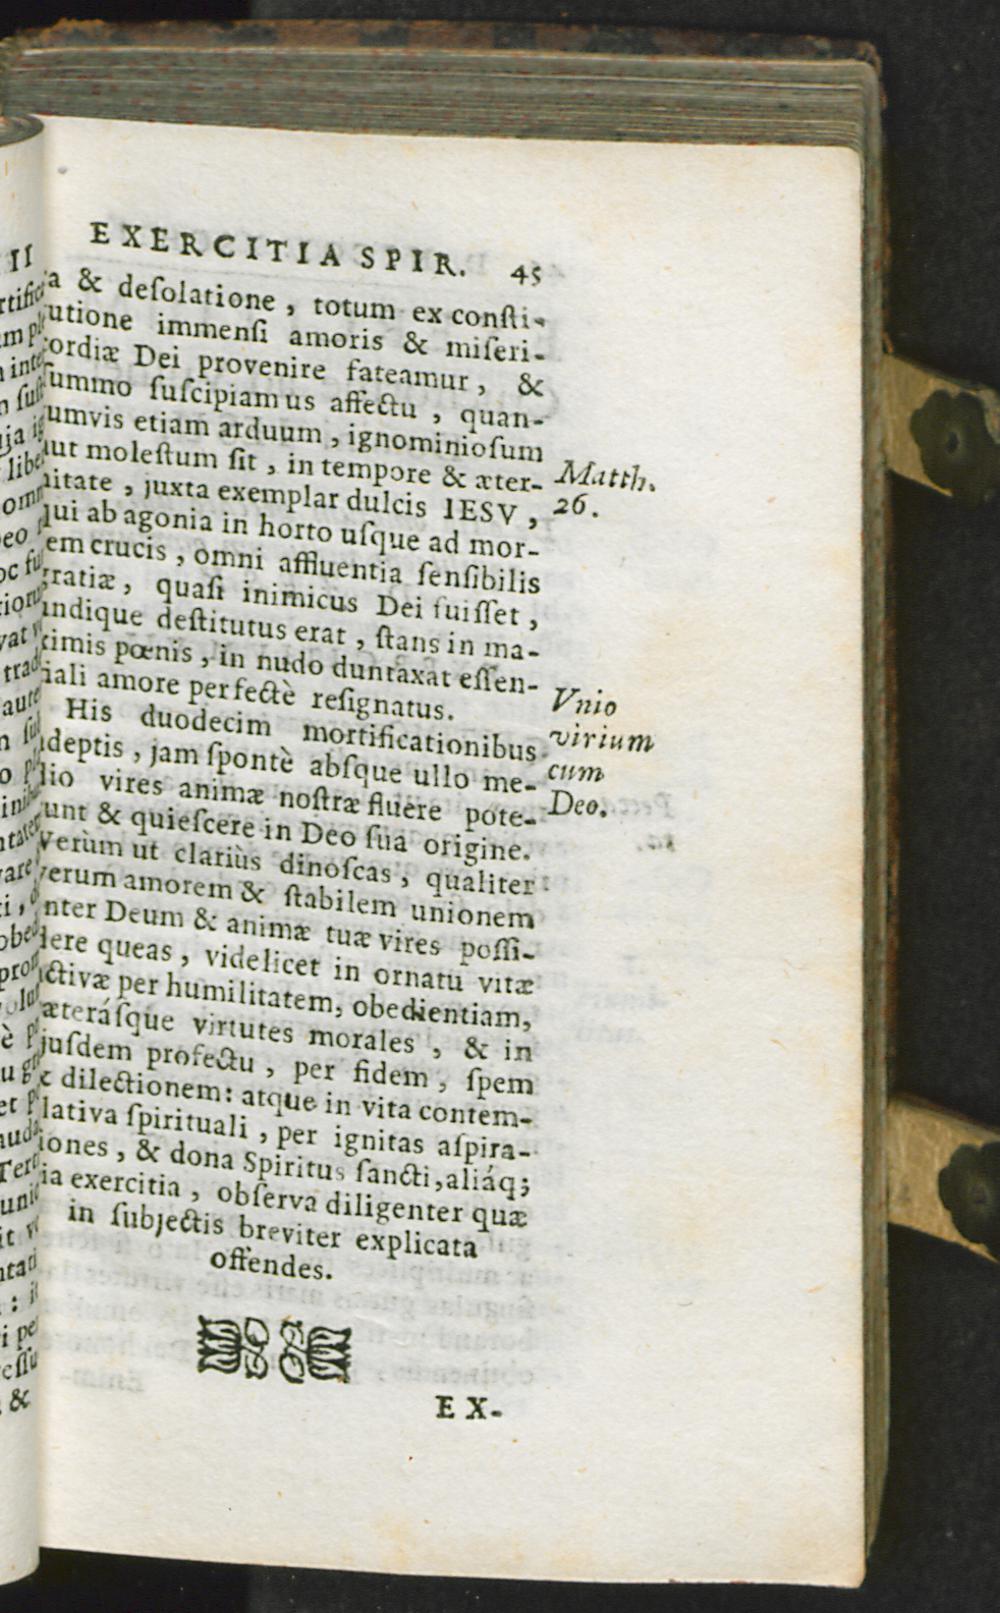 EXERCITIA SPIR. 45
a & deſolatione, totum ex conſti-
utione immenſi amoris & miſeri-
cordiæ Dei provenire fateamur, &
ſummo ſuſcipiamus affectu, quan-
umvis etiam arduum, ignominioſum
aut moleſtum ſit, in tempore & æter-
Matth.
nitate, juxta exemplar dulcis IESV,
26.
qui ab agonia in horto uſque ad mor-
em crucis, omni affluentia ſenſibilis
gratiæ, quaſi inimicus Dei fuiſſet,
undique deſtitutus erat, ſtans in ma-
ximis pœnis, in nudo duntaxat eſſen-
iali amore perfectè reſignatus.
Vnio
virium
cum
Deo.
His duodecim mortificationibus
adeptis, jam ſpontè abſque ullo me-
dio vires animæ noſtræ fluere pote-
unt & quieſcere in Deo ſua origine.
Verùm ut clariùs dinoſcas, qualiter
verum amorem & ſtabilem unionem
nter Deum & animæ tuæ vires poſſi-
dere queas, videlicet in ornatu vitæ
activæ per humilitatem, obedientiam,
æteráſque virtutes morales, & in
juſdem profectu, per fidem, ſpem
& dilectionem: atque in vita contem-
lativa ſpirituali, per ignitas aſpira-
iones, & dona Spiritus ſancti, aliáq;
ia exercitia, obſerva diligenter quæ
in ſubjectis breviter explicata
offendes.
EX-